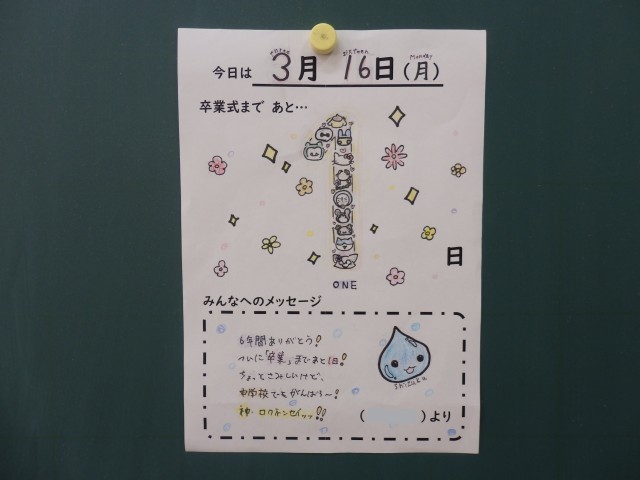 今日は 3月 16日(月)
卒業式まで あと…
日
ONE
みんなへのメッセージ
6年間ありがとう!
ついに「卒業」まであと1日!
ちょっとさみしいけど、
中学校でもがんばろ〜!
神・ロクホンゼッッ!!
Shizuka
( )より